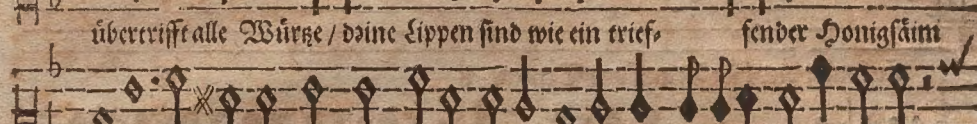 übertrifft alle Würtze / deine Lippen sind wie ein trief- fender Honigsäim